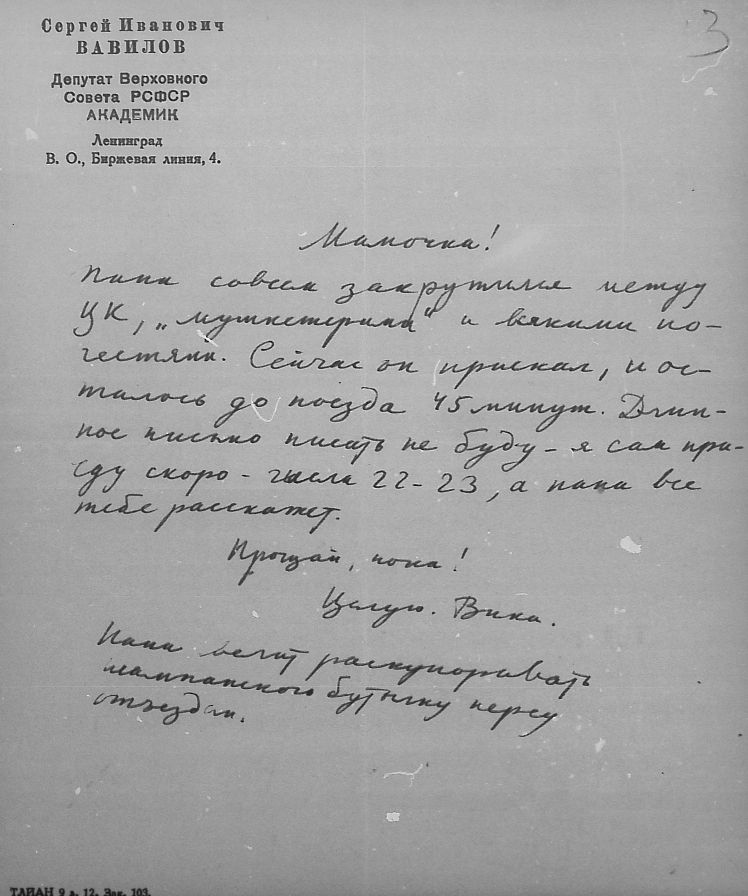 Сергей Иванович
ВАВИЛОВ
Депутат Верховного
Совета РСФСР
АКАДЕМИК
Ленинград
В. О., Биржевая линия, 4.
3
Мамочка!
Папа совсем закрутился между
ЦК, „мушкетерами“ и всякими по-
честями. Сейчас он приехал, и ос-
талось до поезда 45 минут. Длин-
ное письмо писать не буду – я сам при-
еду скоро – числа 22-23, а папа все
тебе расскажет.
Прощай, пока!
Целую. Вика.
Папа велит раскупоривать
шампанского бутылку перед
отъездом.
ТАИАН 9 л. 12. Зак. 103.